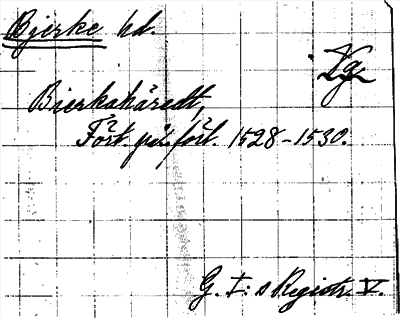 Bjerke hd.
Vg.
Bierkahäredt,
Fört. på förl. 1528-1530.
G. I:s Registr. V.